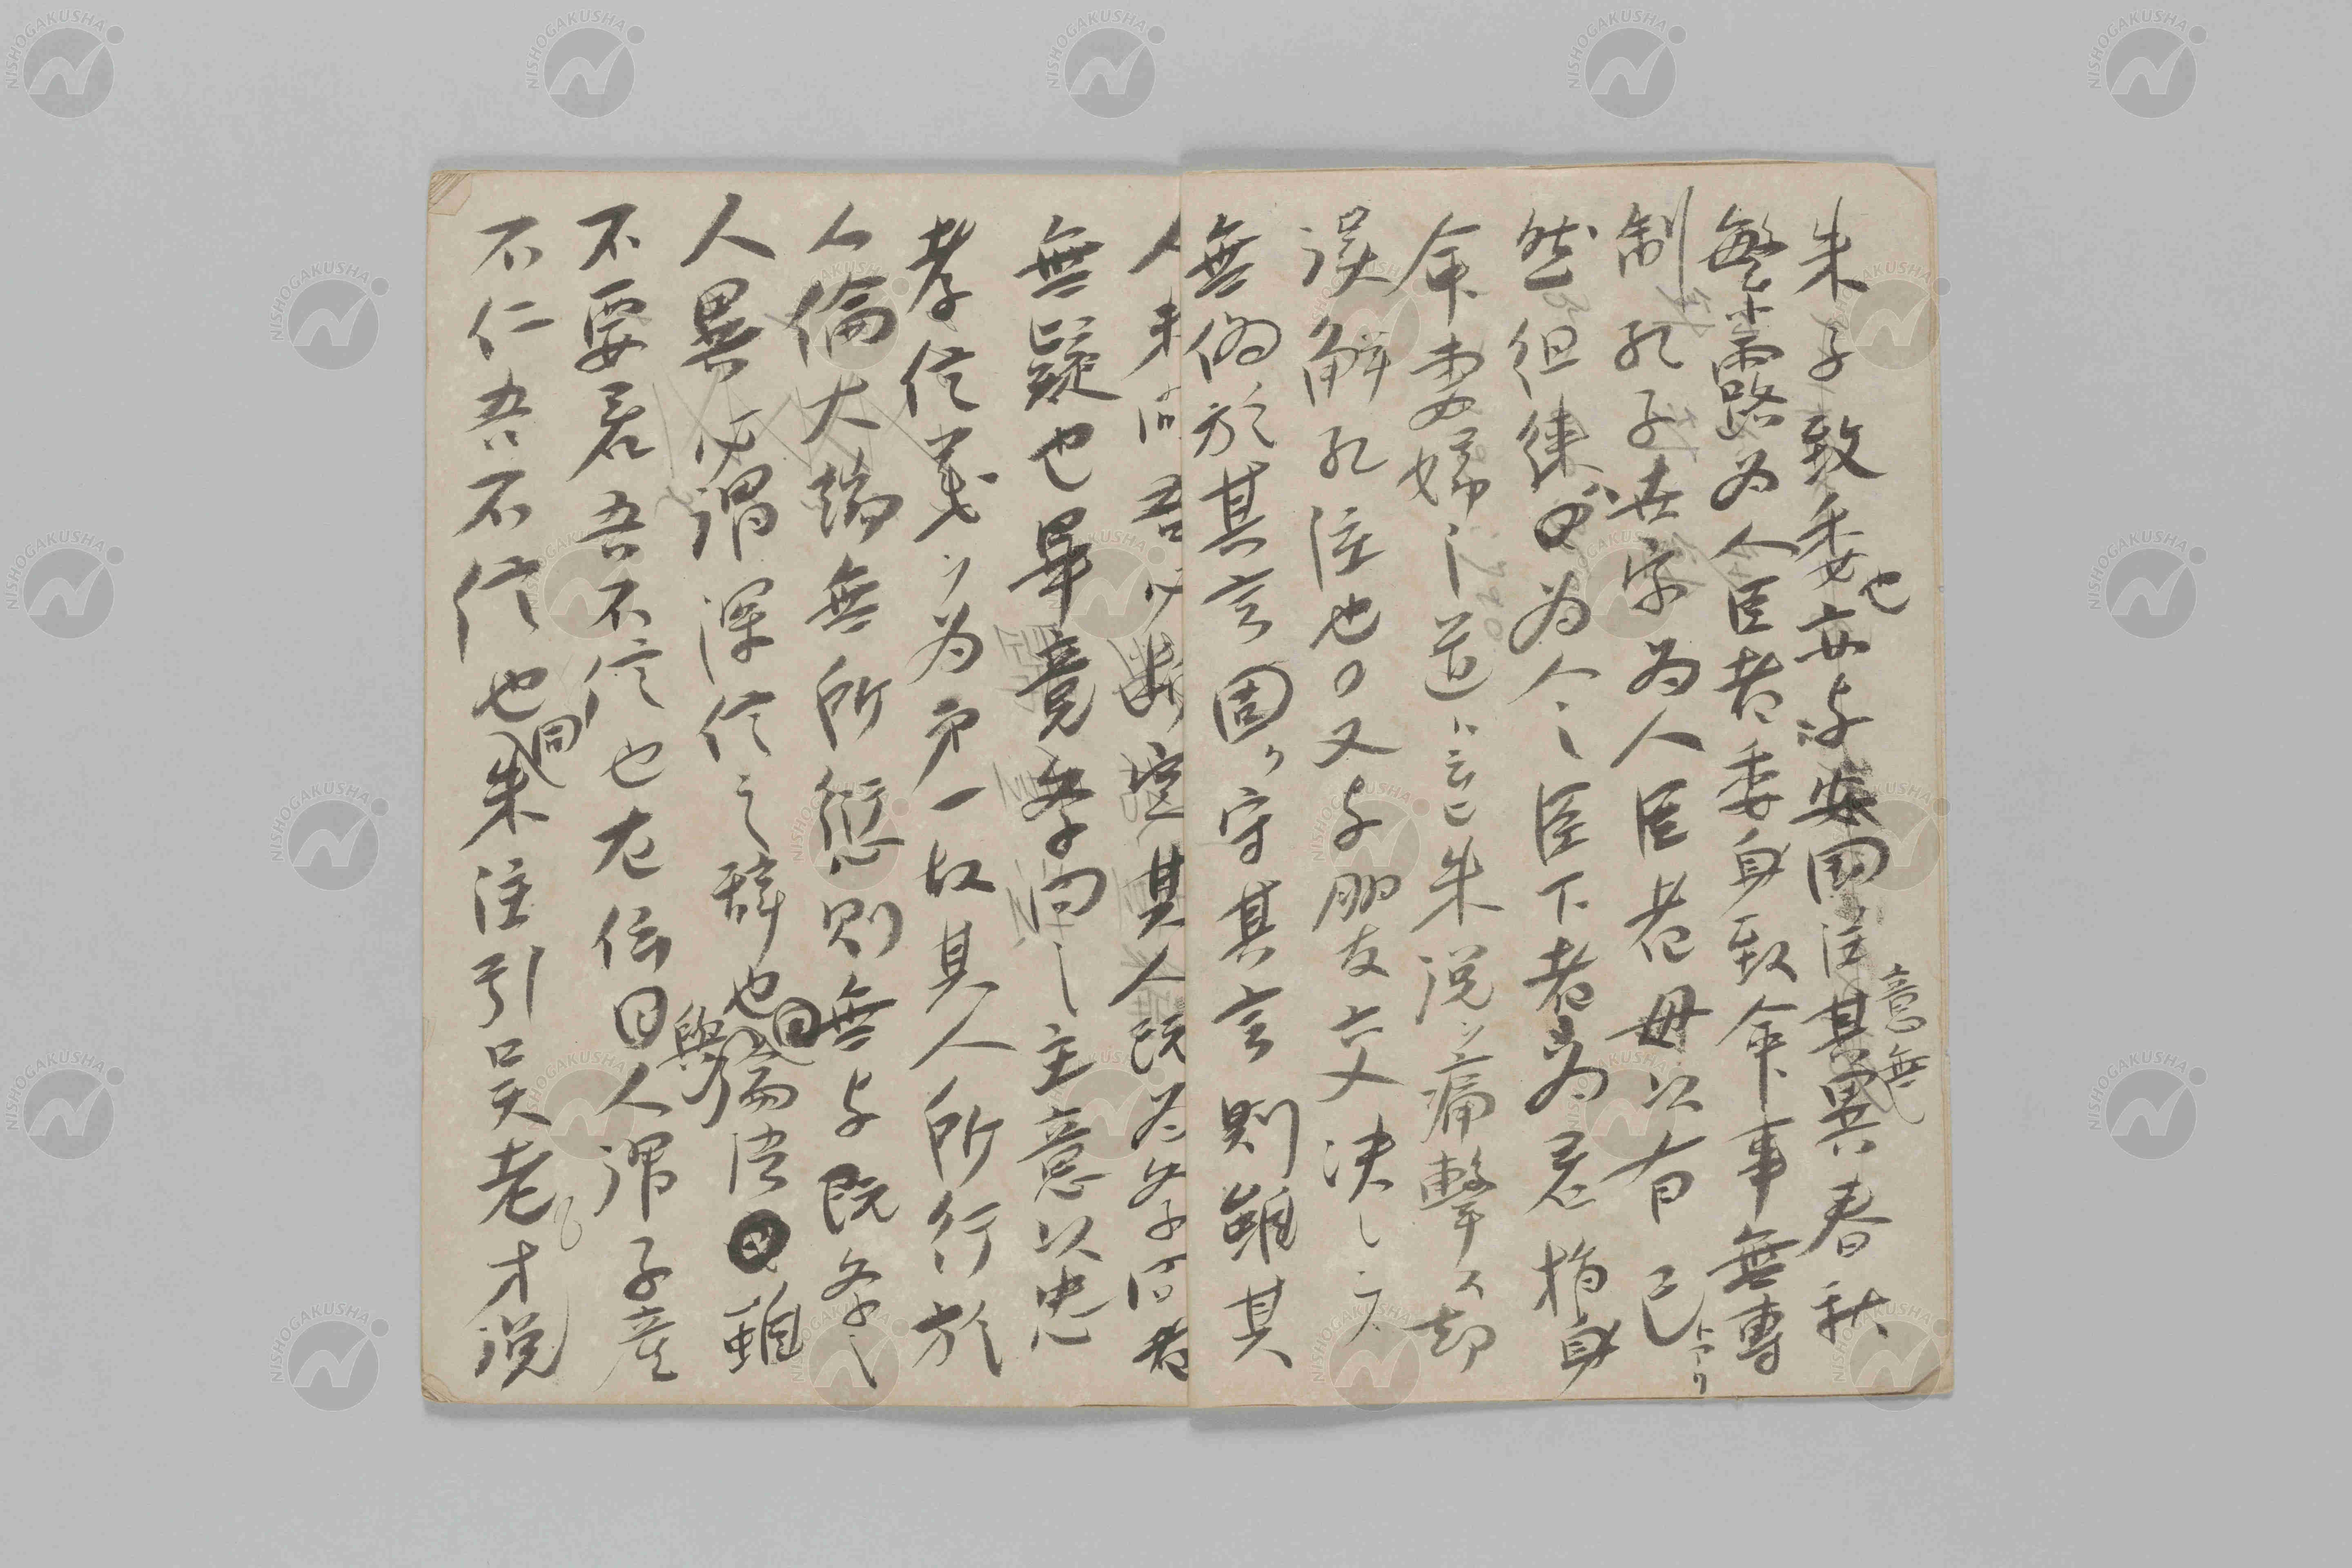 朱子致委也亦与安国注意無其異春秋
繁露為人臣者委身致命事無專
制孔子世家為人臣者毋以有己ヨリ
然但集曰為人之臣下者為君捐身
命ハ妻婦ノ道ニ云云朱説ヲ痛撃ス却
誤解孔注也又与朋友交決シテ
無偽於其言固ク守其言則雖其
人未向吾ハ断定其人既為学問者
無疑也畢竟学問ノ主意以忠
孝信義ヲ為第一故其人所行於
人倫大端無所愆則無与既学ノ
人異必謂深信之辞也與論語曰雖
不要君吾不信也左伝曰人謂子産
不仁吾不信也同朱注引呉老才説
NISHOGAKUSHA